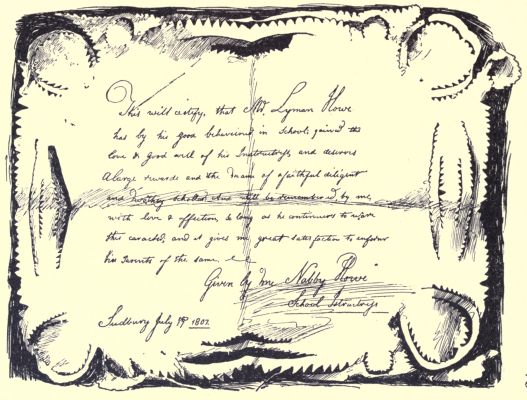 This will certify, that Mr. Lyman Howe
has by his good behaviour in School, gained the
love & good will of his Instructress, and deserves
A large rewards and the name of a faithful diligent
and worthy scholar. And will be remembered by me
with love & affection, so long as he continues to
this caracter, and it gives me great satisfaction to inform
his Parents of the same.
Given by me Nabby Howe
School Instructress
Sudbury July 1807.